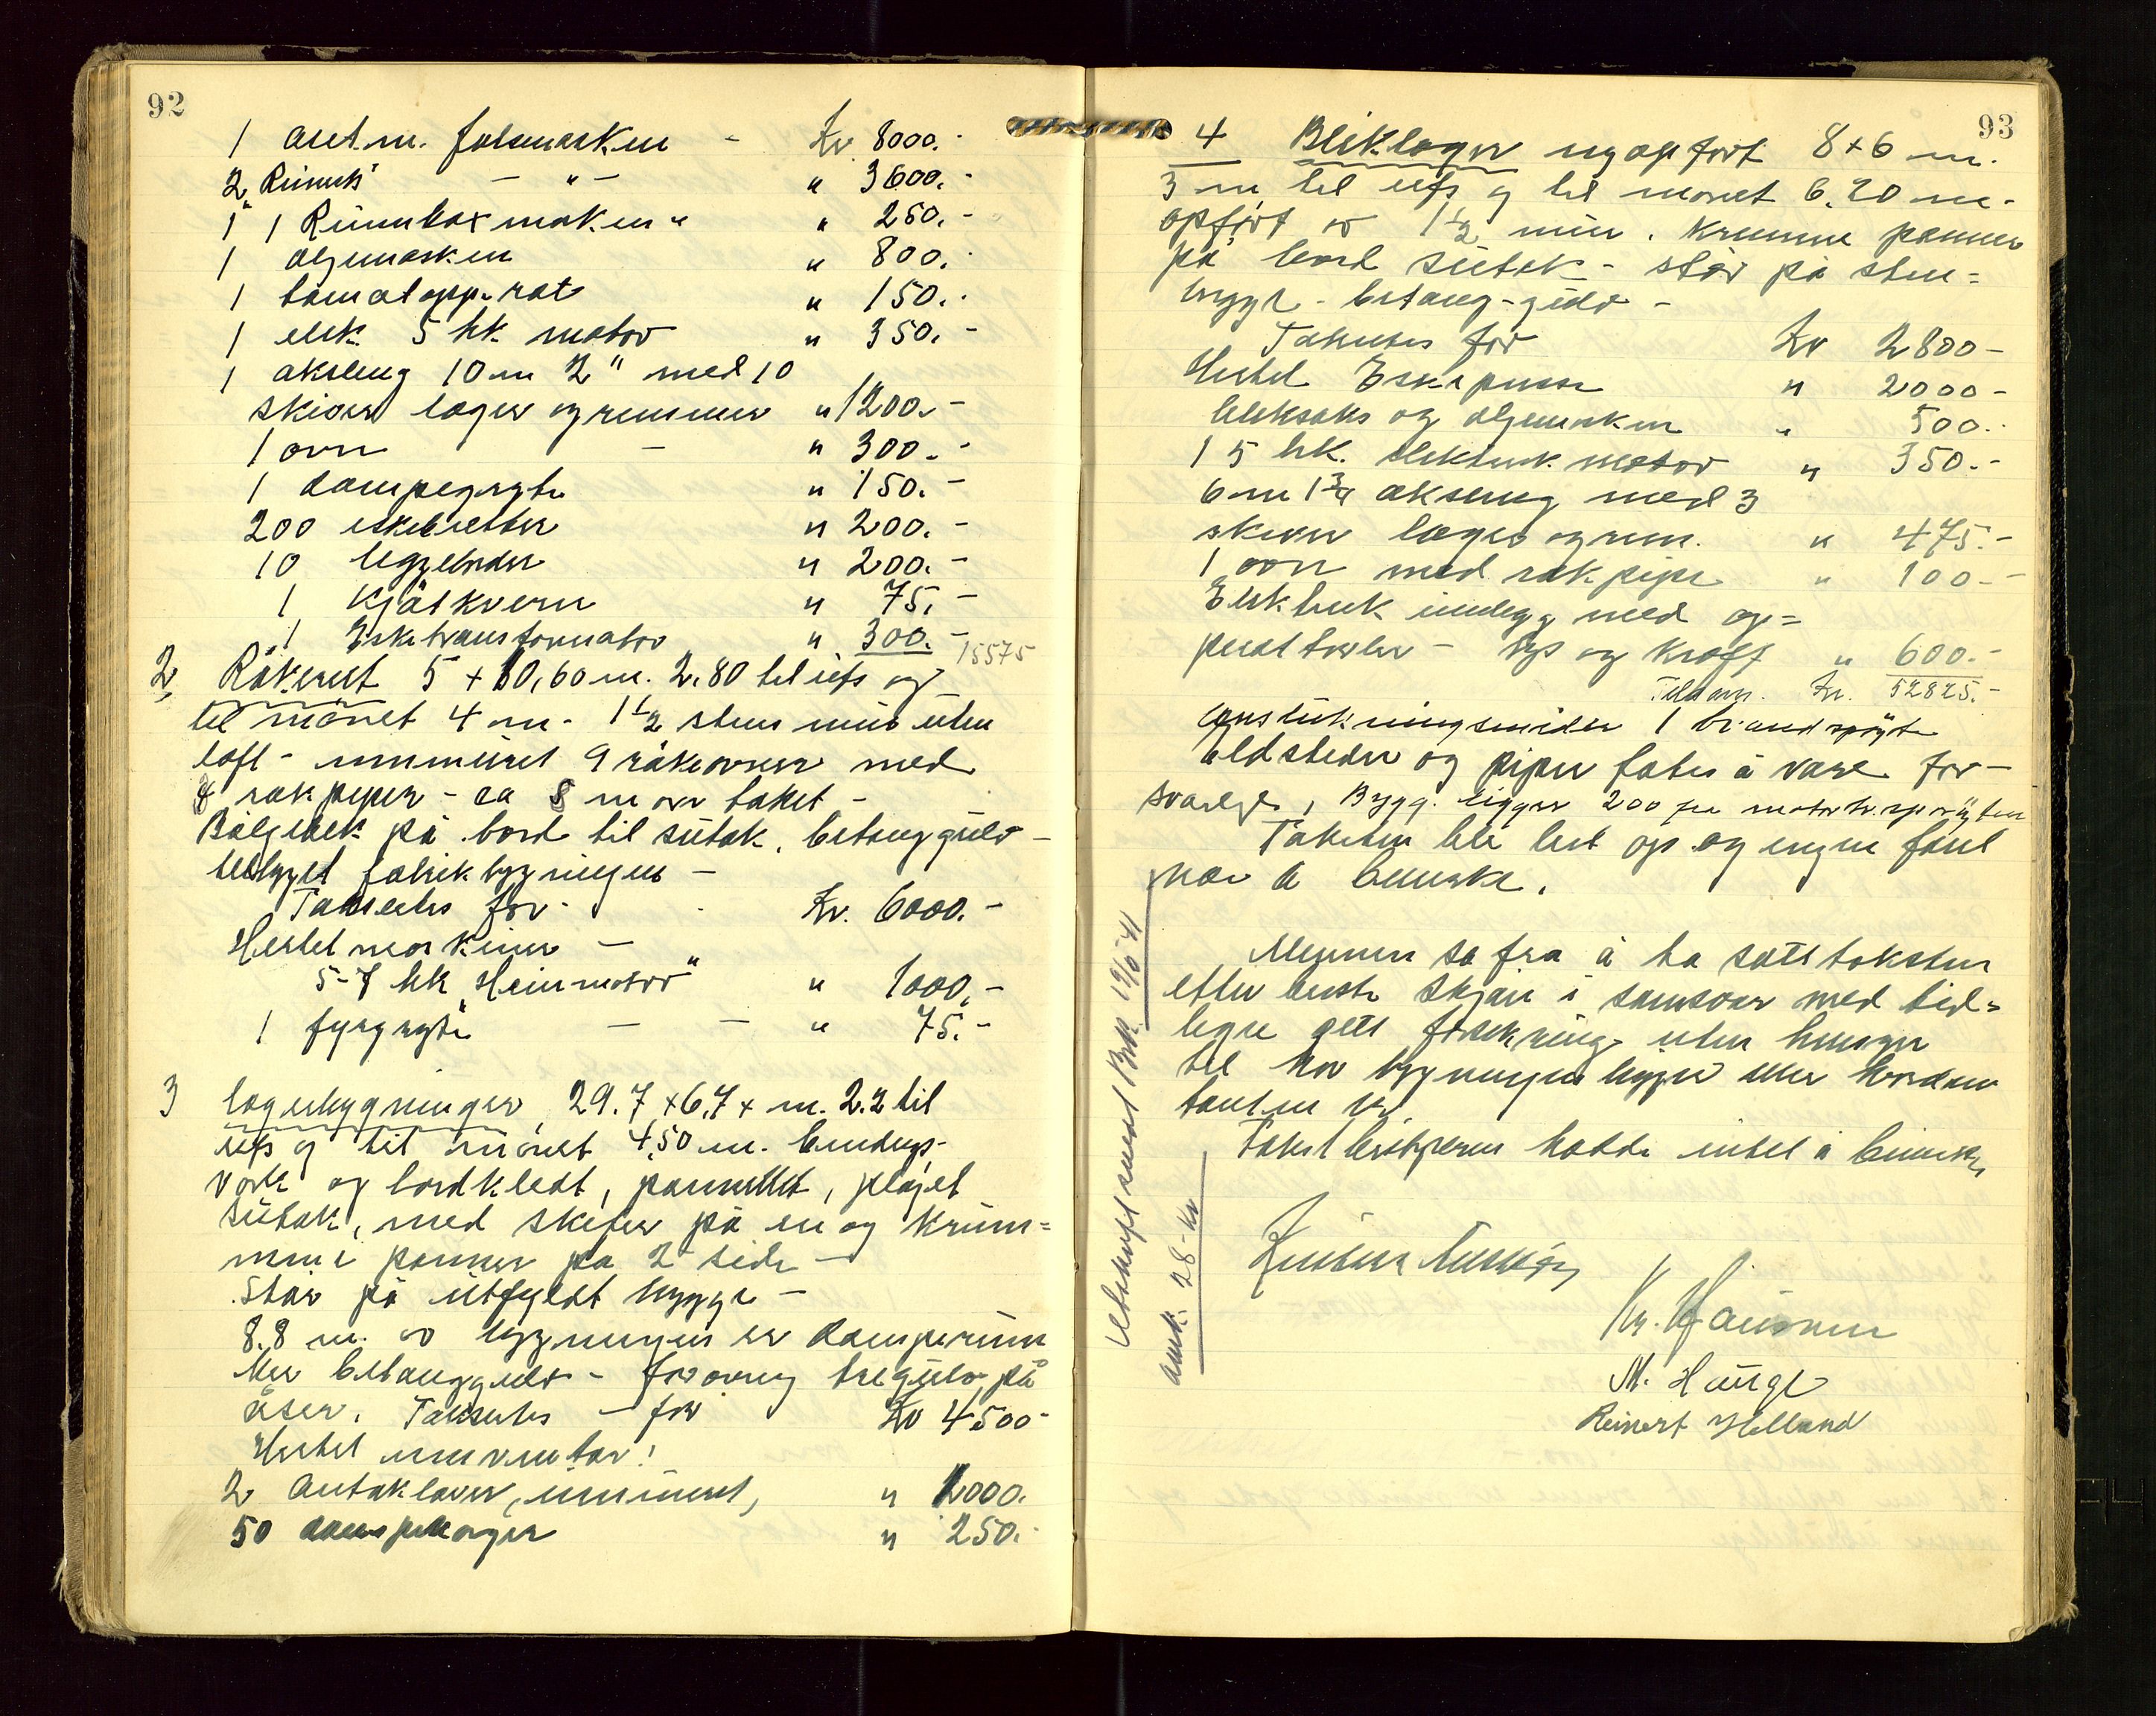 92
1 aut. m. falsmaskin - Kr 8000.-
2 "Reinert" - " - " 3600.-
1 1 Rundbox maskin " " 250.-
1 oljemaskin " 800.-
1 tomatapparat " 150.-
1 elek. 5 hk. motor " 350.-
1 aksling 10 m 2" med 10
skiver lager og remmer " 1200.-
1 ovn - " 300.-
1 dampegryte " 150.-
200 eskebretter " 200.-
10 leggeborder " 200.-
1 Kjøtkvern " 75.-
1 Esketransformator " 300.-
15575
2, Røkeriet 5 + 10,60 m. 2,80 til ufs og
til mønet 4 m. 1 1/2 stens mur uten
loft - innmuret 9 røkeovner med
8 røkpiper - ca 8 m over taket -
Bølgeblek på bord til sutak, betonggulv -
tilbygget fabrikbygningen -
Takseres for - Kr. 6000.-
Hertil maskiner -
5-7 hk "Heinmotor" " 1000.-
1 fyrgryte - - " 75.-
3 lagerbygninger, 29.7 x 6,7 x m. 2.2 til
ufs og til mønet 4,50 m. bindings-
verk og bordkledt, pannellet, pløjet
sutak, med skifer på en og krum=
me panner på 2 side -
Står på utfyldt brygge -
8.8 m. av bygningen er damperum
her betonggulv - forøvrig tregulv på
åser. Takseres - for Kr 4500-
Hertil innventar!
2 Autoklaver, innmuret, " 2000.
50 dampekorger " 250.-
93
4 Bliklager nyopført 8 x 6 m.
3 m til ufs og til mønet 6.20 m.
opført av 1 1/2 mur. Krumme panner
på bord sutak - står på sten=
brygge - betong-gulv -
Takseres for Kr 2800-
Hertil Eskepresse " 2000-
bliksaks og oljemaskin " 500.-
1 5 hk. elektrisk motor " 350.-
6 m 1 3/4 aksling med 3
skiver lager og rem. " 475.-
1 ovn med røkpipe " 100.-
Elektrisk innlegg med op=
perattorer - lys og kraft " 600.-
Tilsamm. Kr. 52825.-
Eganslukningsmidler 1 brandsprøyte
ildsteder og piper sates å være for-
svarlige, Bygg. ligger 200 fra motorbr.sprøyten
Taksten ble lest op og ingen fant
noe å bemerke.
Mennen sa fra å ha satt taksten
efter beste skjøn i samsvar med tid=
ligre gitt forsikring uten hensyn
til hvor bygningen ligger eller hvordan
tomten er.
Takstbestyreren hadde intet å bemerke
Kr. Hausken
M. Hauge
Reinert Helland
Utskrift sendt Brk. 19/5 41
ank. 28-kr